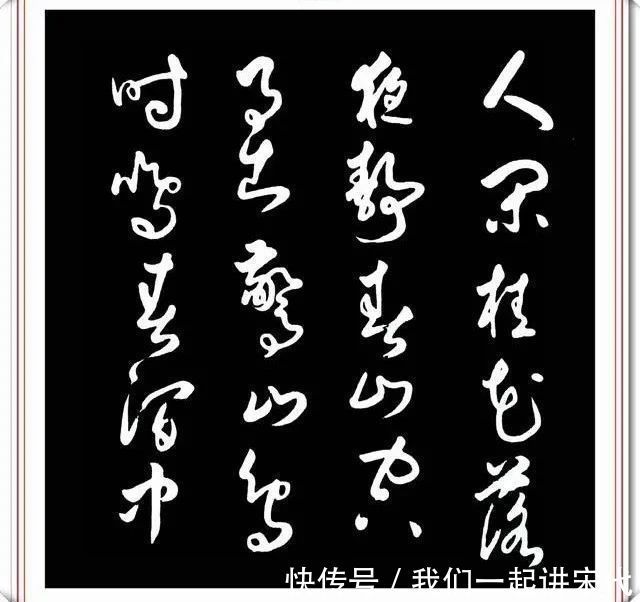 人闲桂花落
夜静春山空
月出驚山鸟
时鸣春涧中
快传号 / 我们一起讲宋代